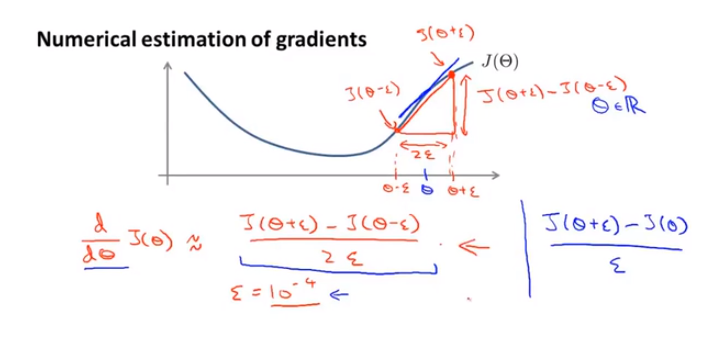 Numerical estimation of gradients
J(θ+ε)
J(Θ)
J(θ-ε)
J(θ+ε) - J(θ-ε)
θ ∈ ℝ
2ε
θ-ε θ θ+ε
d/dθ J(θ) ≈ J(θ+ε) - J(θ-ε) / 2ε ← | J(θ+ε) - J(θ) / ε
ε = 10^-4 ←